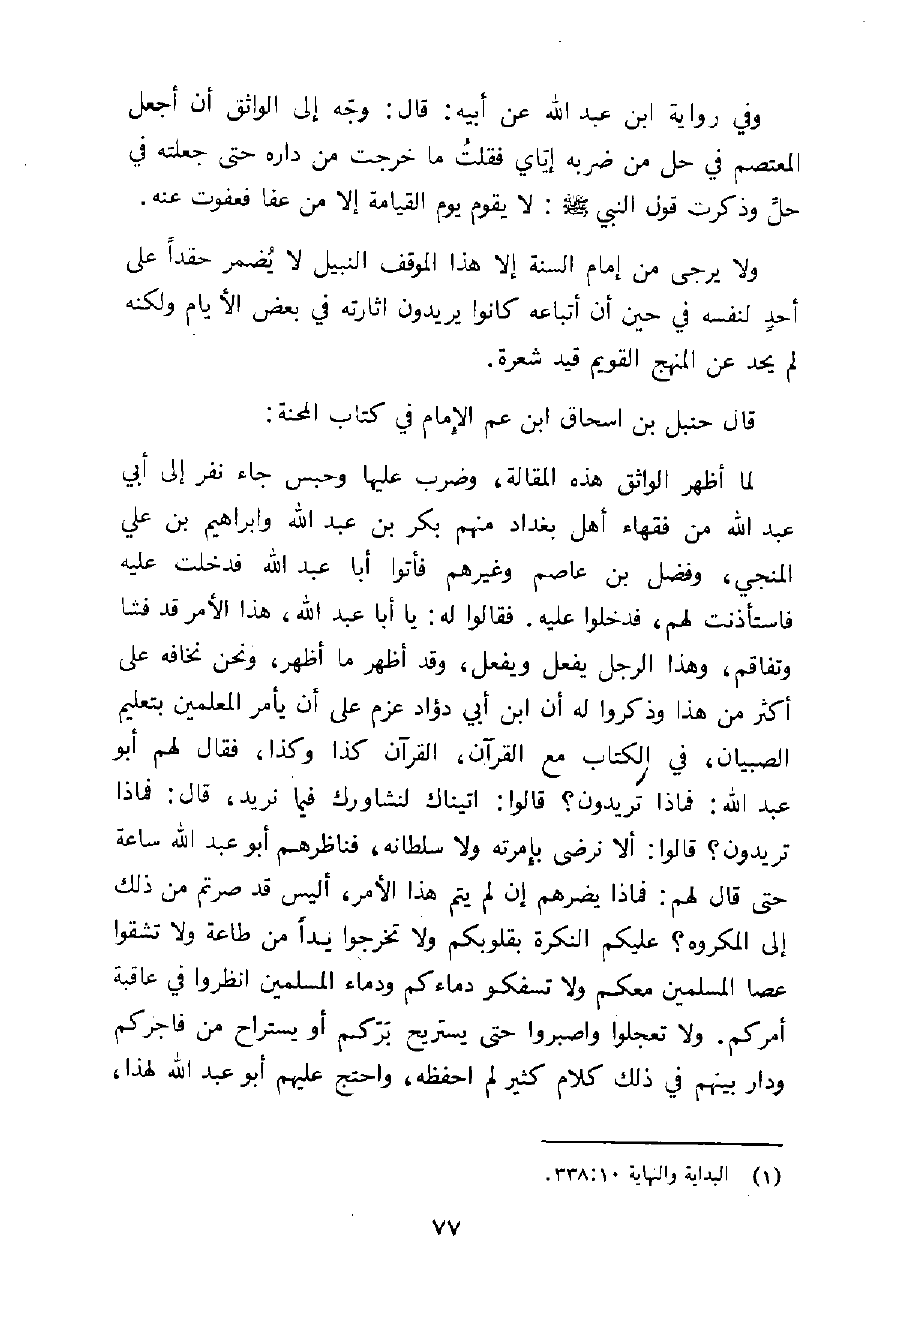 وفي رواية ابن عبد الله عن أبيه: قال: وجّه إلى الواثق أن أجعل
المعتصم في حل من ضربه إيّاي فقلتُ ما خرجت من داره حتى جعلته في
حلّ وذكرت قول النبي ﷺ : لا يقوم يوم القيامة إلا من عفا فعفوت عنه.
ولا يرجى من إمام السنة إلا هذا الموقف النبيل لا يُضمر حقداً على
أحدٍ لنفسه في حين أن أتباعه كانوا يريدون اثارته في بعض الأيام ولكنه
لم يحد عن المنهج القويم قيد شعرة.
قال حنبل بن اسحاق ابن عم الإمام في كتاب المحنة:
لما أظهر الواثق هذه المقالة، وضرب عليها وحبس جاء نفر إلى أبي
عبد الله من فقهاء أهل بغداد منهم بكر بن عبد الله وابراهيم بن علي
المنجي، وفضل بن عاصم وغيرهم فأتوا أبا عبد الله فدخلت عليه
فاستأذنت لهم، فدخلوا عليه. فقالوا له: يا أبا عبد الله، هذا الأمر قد فشا
وتفاقم، وهذا الرجل يفعل ويفعل، وقد أظهر ما أظهر، ونحن نخافه على
أكثر من هذا وذكروا له أن ابن أبي دؤاد عزم على أن يأمر المعلمين بتعليم
الصبيان، في الكتاب مع القرآن، القرآن كذا وكذا، فقال لهم أبو
عبد الله: فماذا تريدون؟ قالوا: اتيناك لنشاورك فيما نريد، قال: فماذا
تريدون؟ قالوا: ألا نرضى بإمرته ولا سلطانه، فناظرهم أبو عبد الله ساعة
حتى قال لهم: فماذا يضرهم إن لم يتم هذا الأمر، أليس قد صرتم من ذلك
إلى المكروه؟ عليكم النكرة بقلوبكم ولا تخرجوا يداً من طاعة ولا تشقوا
عصا المسلمين معكم ولا تسفكو دماءكم ودماء المسلمين انظروا في عاقبة
أمركم. ولا تعجلوا واصبروا حتى يستريح برّكم أو يستراح من فاجركم
ودار بينهم في ذلك كلام كثير لم احفظه، واحتج عليهم أبو عبد الله لهذا،
(١) البداية والنهاية ٣٣٨:١٠.
٧٧